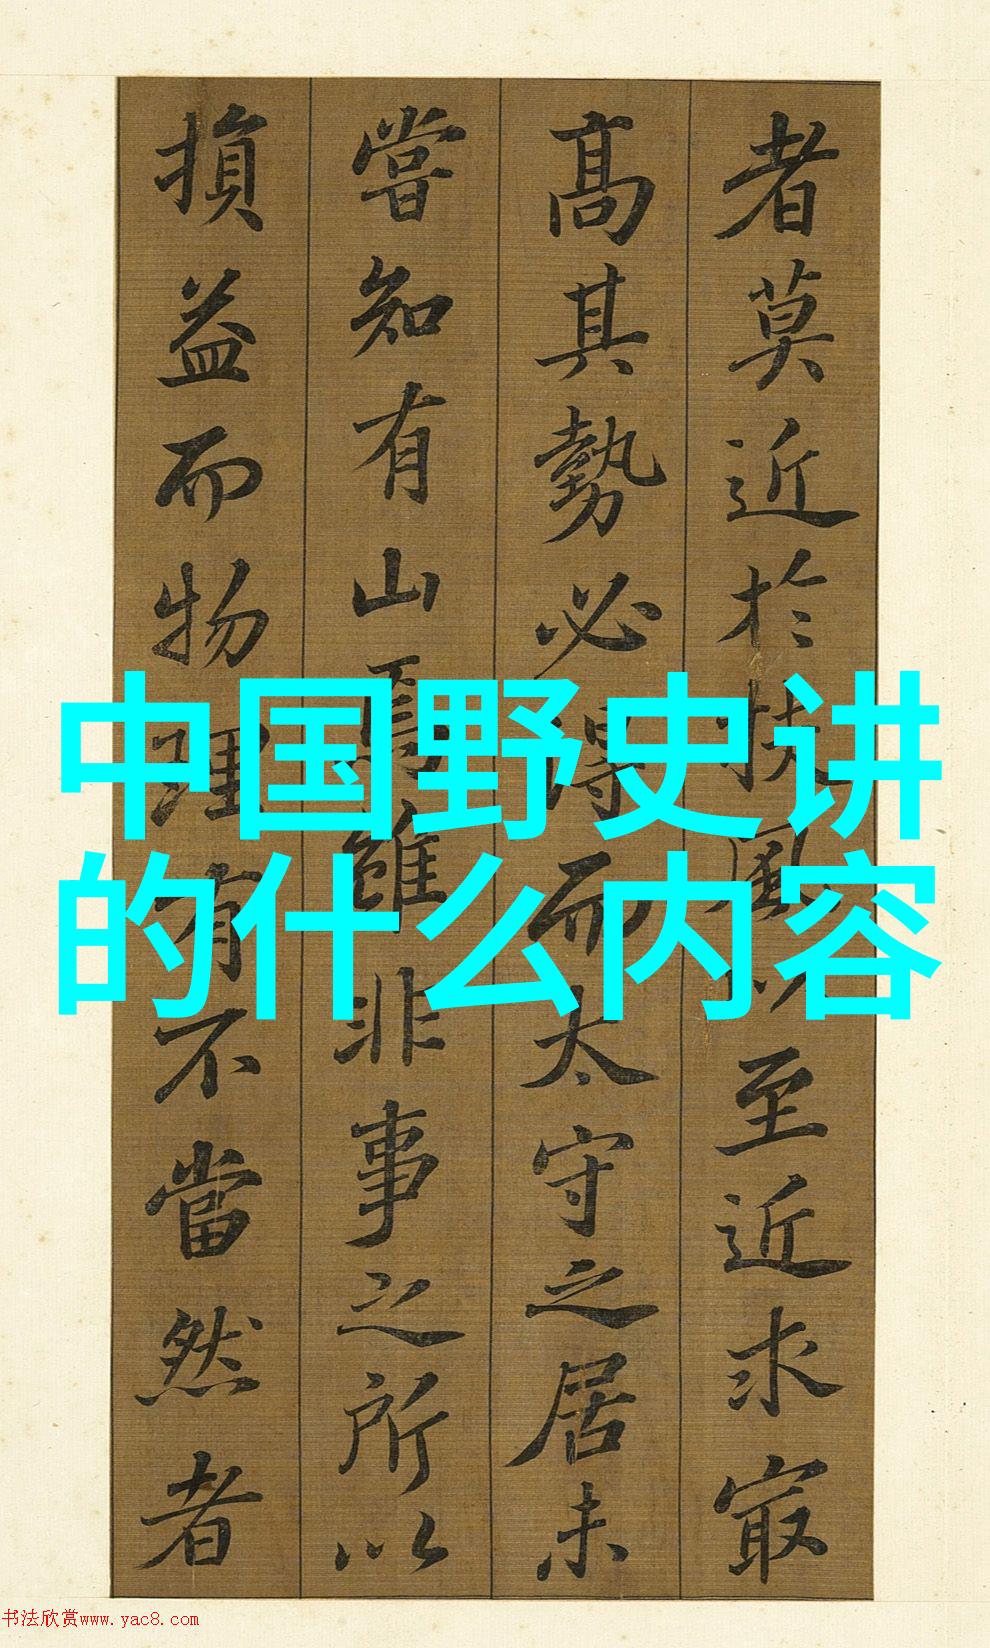 中国野史讲
的什么内容
者莫近於扶風以至近求㝡
髙其勢必得而太守之居未
嘗知有山焉雖非事之所以
損益而物理有不當然者
书法欣赏www.yac8.com